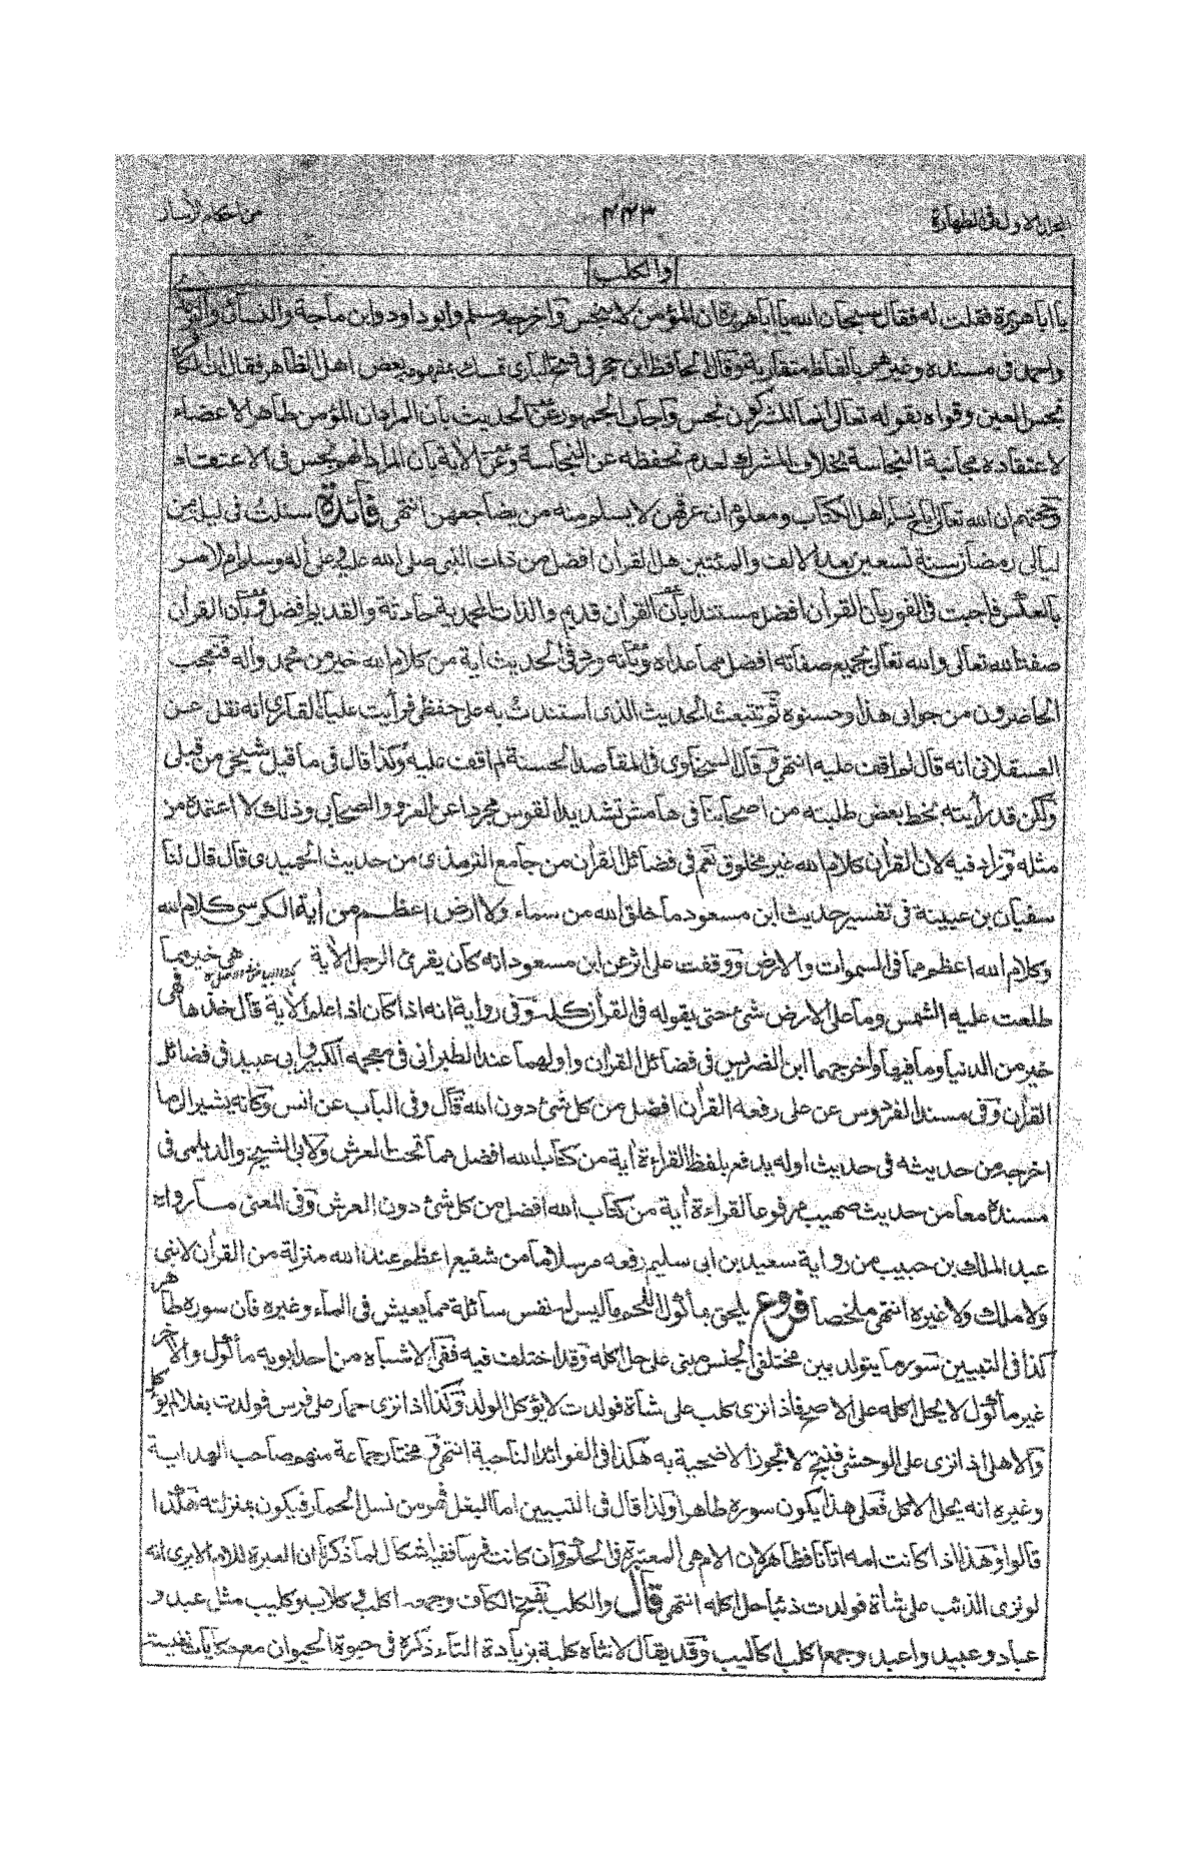 الجزء الاول فى الطهارة
٤٤٣
من احكام الأسار
والكلب
يا ابا هريرة فقلت له فقال سبحان الله يا ابا هريرة ان المؤمن لا ينجس واخرجه مسلم وابو داود وابن ماجة والنسائى والترمذى
واحمد فى مسنده وغيرهم بالفاظ متقاربة وقال الحافظ ابن حجر فى فتح البارى تمسك بمفهومه بعض اهل الظاهر فقال ان الكافر
نجس العين وقواه بقوله تعالى انما المشركون نجس واجاب الجمهور عن الحديث بان المراد ان المؤمن طاهر الاعضاء
لاعتقاده مجانبة النجاسة بخلاف المشرك لعدم تحفظه عن النجاسة وعن الأية بان المراد انهم نجس فى الاعتقاد
وحجتهم ان الله تعالى اباح نساء اهل الكتاب ومعلوم ان عرقهن لا يسلم منه من يضاجعهن انتهى فائدة سئلت فى ليلة من
ليالى رمضان سنة تسعين بعد الالف والمئتين هل القرأن افضل من ذات النبى صلى الله عليه وعلى أله وسلم ام الامر
بالعكس فاجبت فى الفور بان القرأن افضل مستندا بأن القرأن قديم والذات المحمدية حادثة والقديم افضل وبأن القرأن
صفة الله تعالى والله تعالى بجميع صفاته افضل مما عداه وبأنه ورد فى الحديث أية من كلام الله خير من محمد وأله فتعجب
الحاضرون من جوابى هذا وحسنوه ثم تتبعت الحديث الذى استندت به على حفظى فرأيت عليا القارى انه نقل عن
العسقلانى انه قال لم اقف عليه انتهى وقال السخاوى فى المقاصد الحسنة لم اقف عليه وكذا قال فى ما قيل شيخى من قبلى
ولكن قد رأيته بخط بعض طلبته من اصحابنا فى هامش تشديد القوس مجردا عن العزو والصحابى وذلك لا اعتمده من
مثله وزاد فيه لان القرأن كلام الله غير مخلوق نعم فى فضائل القرأن من جامع الترمذى من حديث الحميدى قال قال لنا
سفيان بن عيينة فى تفسير حديث ابن مسعود ما خلق الله من سماء ولا ارض اعظم من أية الكرسى كلام الله
وكلام الله اعظم مما فى السموات والارض ووقفت على اثر عن ابن مسعود انه كان يقرئ الرجل الأية هى خير مما
طلعت عليه الشمس وما على الارض شئ حتى يقوله فى القرأن كله وفى رواية انه اذا كان اذا علم الأية قال خذها فهى
خير من الدنيا وما فيها واخرجهما ابن الضريس فى فضائل القرأن واولهما عند الطبرانى فى معجمه الكبير وابى عبيد فى فضائل
القرأن وفى مسند الفردوس عن على رفعه القرأن افضل من كل شئ دون الله قال وفى الباب عن انس وكانه يشير الى ما
اخرجه من حديثه فى حديث اوله يدفع بلفظ القراءة أية من كتاب الله افضل مما تحت العرش ولابى الشيخ والديلمى فى
مسنده معا من حديث صهيب مرفوعا لقراءة أية من كتاب الله افضل من كل شئ دون العرش وفى المعنى ما رواه
عبد الملك بن حبيب من رواية سعيد بن ابى سليم رفعه مرسلا ما من شفيع اعظم عند الله منزلة من القرأن لا نبى
ولا ملك ولا غيره انتهى ملخصا فروع يلحق بمأكول اللحم ما ليس له نفس سائلة مما يعيش فى الماء وغيره فان سوره طاهر
كذا فى التبيين سور ما يتولد بين مختلفى الجنس مبنى على حل اكله وقد اختلف فيه ففى الاشباه من احد ابويه مأكول والأخر
غير مأكول لا يحل اكله على الاصح فاذا نزى كلب على شاة فولدت لا يؤكل الولد وكذا اذا نزى حمار على فرس فولدت بغلا لم يؤكل
والاهلى اذا نزى على الوحشى فنتج لا تجوز الاضحية به هكذا فى الفوائد التاجية انتهى ومختار جماعة منهم صاحب الهداية
وغيره انه يحل الاكل فعلى هذا يكون سوره طاهرا ولذا قال فى التبيين اما البغل فهو من نسل الحمار فيكون بمنزلته هكذا
قالوا وهذا اذا كانت امه اتانا فظاهر لان الام هى المعتبرة فى الحكم وان كانت فرسا ففيه اشكال لما ذكرنا ان العبرة للام الا يرى انه
لو نزى الذئب على شاة فولدت ذئبا حل اكله انتهى قال والكلب بفتح الكاف وجمعه اكلب وكلاب وكليب مثل عبد و
عباد وعبيد واعبد وجمع اكلب اكاليب وقد يقال لانثاه كلبة بزيادة التاء ذكره فى حيوة الحيوان مع حكايات نفيسة